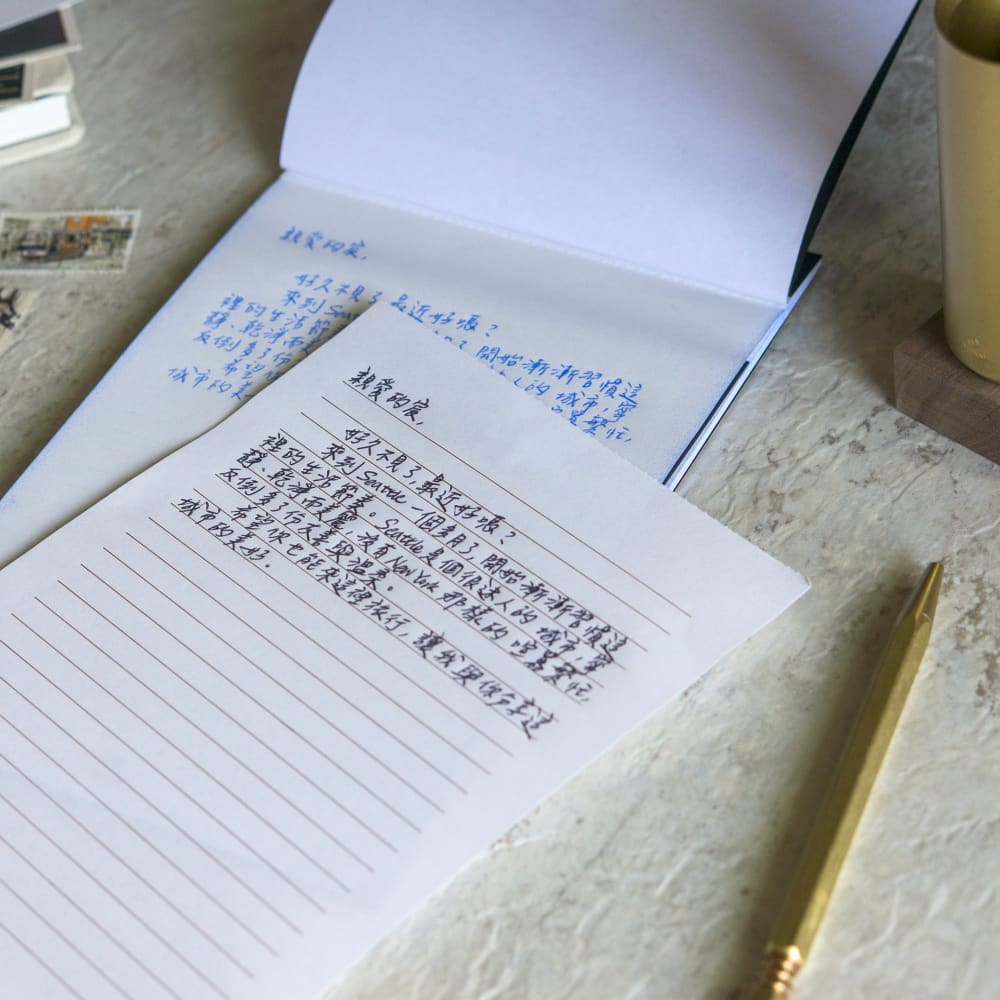 親愛的宸,
好久不見了,最近好嗎?
來到Sea 開始漸漸習慣這
裡的生活節 人的城市,寧
靜、乾淨而 繁忙,
反倒多了份
希望
城市的美
親愛的宸,
好久不見了,最近好嗎?
來到Seattle一個多月了,開始漸漸習慣這
裡的生活節奏。Seattle是個很迷人的城市,寧
靜、乾淨而美麗,沒有New York那樣的喧囂繁忙,
反倒多了份友善與溫柔。
希望你也能來這裡旅行,讓我與你分享這
城市的美好。